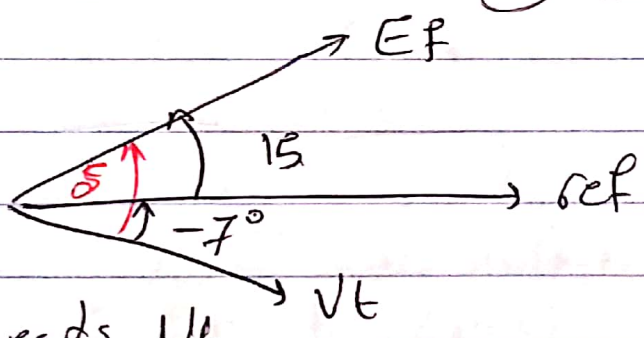 Ef
15
δ
ref
-7°
Vt